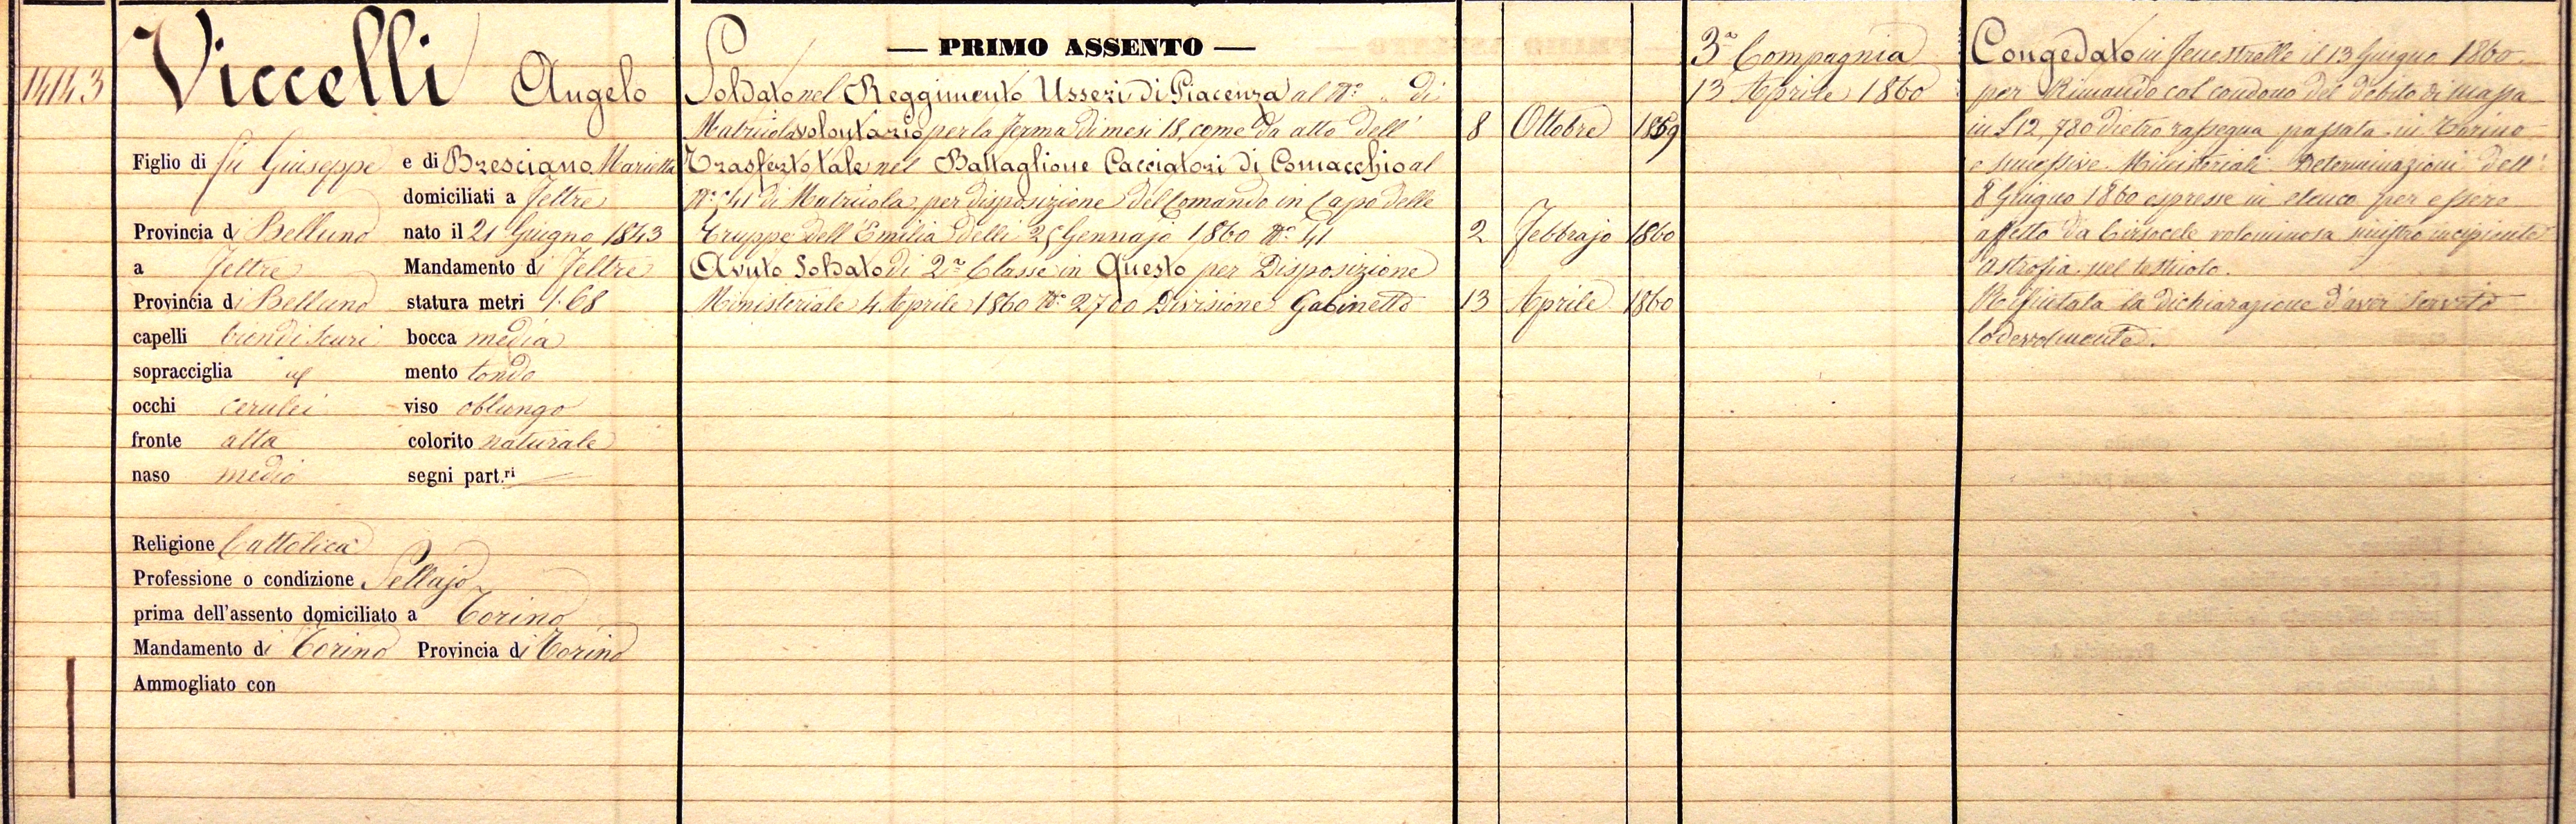 1443
Viccelli Angelo
Figlio di fu Giuseppe e di Bresciano Marietta
domiciliati a Feltre
Provincia di Belluno nato il 21 Giugno 1843
a Feltre Mandamento di Feltre
Provincia di Belluno statura metri 1.68
capelli biondi scuri bocca media
sopracciglia id mento tondo
occhi cerulei viso oblungo
fronte alta colorito naturale
naso medio segni part.ri
Religione Cattolica
Professione o condizione Sellajo
prima dell'assento domiciliato a Torino
Mandamento di Torino Provincia di Torino
Ammogliato con
— PRIMO ASSENTO —
Soldato nel Reggimento Usseri di Piacenza al N° " di
Matricola volontario per la ferma di mesi 18, come da atto dell' 8 Ottobre 1859
Trasferto tale nel Battaglione Cacciatori di Comacchio al
N° 341 di Matricola per disposizione del Comando in Capo delle
Truppe dell'Emilia delli 25 Gennajo 1860 N° 41 2 Febbrajo 1860
Avuto Soldato di 2a Classe in Questo per Disposizione
Ministeriale 4 Aprile 1860 N° 2700 Divisione Gabinetto 13 Aprile 1860
3a Compagnia
13 Aprile 1860
Congedato in Fenestrelle il 13 Giugno 1860
per Rimando col condono del debito di massa
in L 12,780 dietro rassegna passata in Torino
e successive Ministeriali Determinazioni dell'
8 Giugno 1860 espresse in elenco per essere
affetto da Cirsocele voluminosa sinistro incipiente
astrofia nel testicolo.
Rifiutata la dichiarazione d'aver servito
lodevolmente.